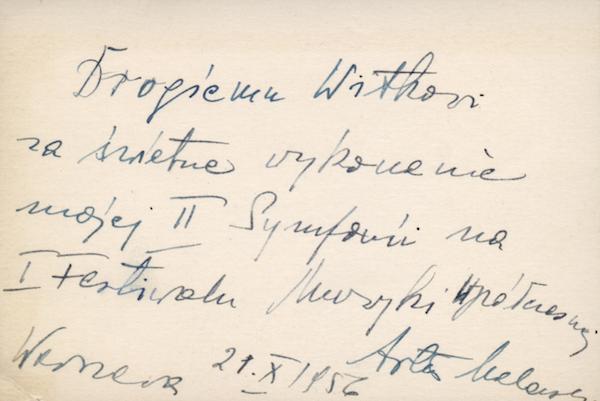 Drogiemu Witkowi
za świetne wykonanie
mojej II Symfonii na
I Festiwalu Muzyki Współczesnej
Warszawa 21. X 1956 Artur Malawski